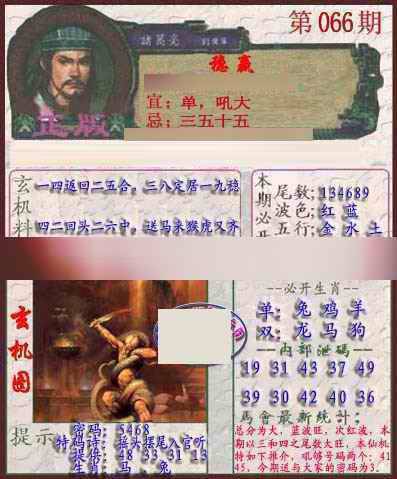 第066期
諸葛亮
稳赢
宜：单，吼大
忌：三五十五
正版
玄机料
一四返回二五合，三八定居一九稳
四二回头二六中，送马来猴虎又齐
本期必开
尾数：134689
波色：红 蓝
五行：金 水 土
玄机图
--必开生肖--
单：兔 鸡 羊
双：龙 马 狗
--内部泄码--
19 31 43 37 49
39 30 42 40 36
馬會最新統計：
总分为大，蓝波旺，次红波，本
期以三和四之尾数大旺，本仙机
特如下推介，吼够号码两个：41
45，今期送与大家的密码为3．
提示
密码：5468
特码诗：摇头摆尾入官听
提供：48 33 31 13
生肖：马．兔